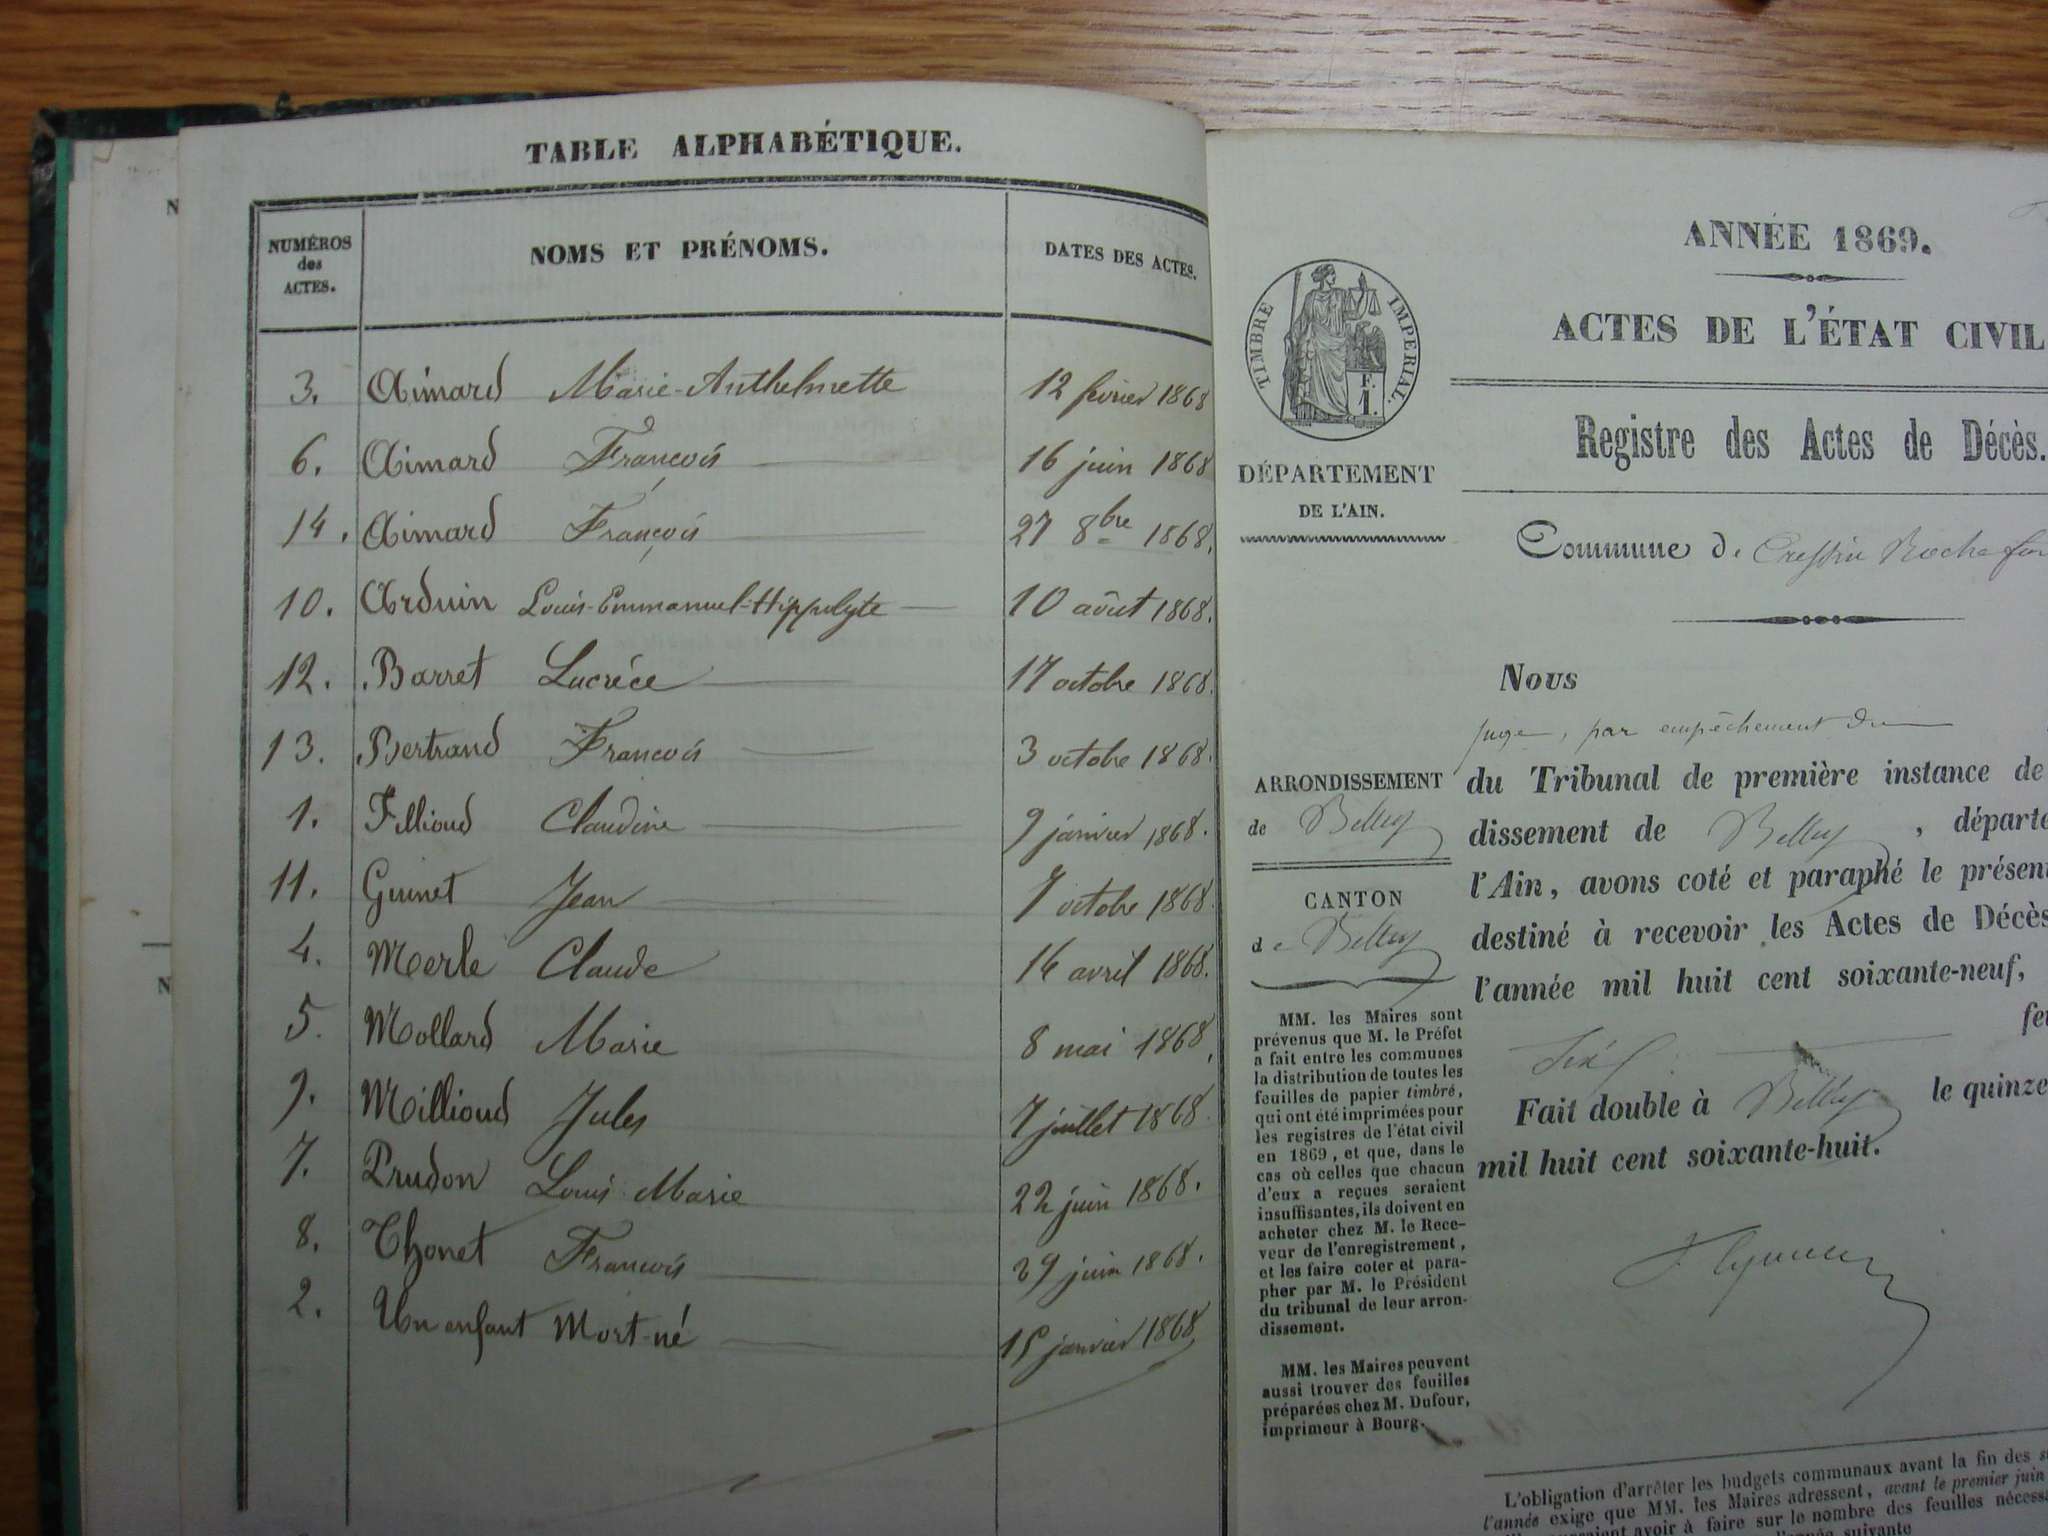 TABLE ALPHABÉTIQUE.
NUMÉROS des ACTES. NOMS ET PRÉNOMS. DATES DES ACTES.
3. Aimard Marie-Anthelmette 12 février 1868
6. Aimard François 16 juin 1868
14. Aimard François 27 8bre 1868.
10. Arduin Louis-Emmanuel-Hippolyte 10 août 1868.
12. Barret Lucréce 17 octobre 1868.
13. Bertrand Francois 3 octobre 1868.
1. Fillioud Claudine 9 janvier 1868.
11. Guinet Jean 7 octobre 1868.
4. Merle Claude 14 avril 1868.
5. Mollard Marie 8 mai 1868,
9. Millioud Jules 7 juillet 1868.
7. Prudon Louis Marie 22 juin 1868.
8. Thonet Francois 29 juin 1868.
2. Un enfant Mort-né 15 janvier 1868,
ANNÉE 1869.
ACTES DE L'ÉTAT CIVIL
TIMBRE IMPERIAL.
F.
1.
Registre des Actes de Décès.
DÉPARTEMENT
DE L'AIN.
Commune de Cressin Rochefor
Nous
juge, par empêchement du
du Tribunal de première instance de
dissement de Belley, départe
l'Ain, avons coté et paraphé le présen
destiné à recevoir les Actes de Décès
l'année mil huit cent soixante-neuf,
feu
Fait double à Belley le quinze
mil huit cent soixante-huit.
ARRONDISSEMENT
de Belley
CANTON
de Belley
MM. les Maires sont
prévenus que M. le Préfet
a fait entre les communes
la distribution de toutes les
feuilles de papier timbré,
qui ont été imprimées pour
les registres de l'état civil
en 1869, et que, dans le
cas où celles que chacun
d'eux a reçues seraient
insuffisantes, ils doivent en
acheter chez M. le Rece-
veur de l'enregistrement,
et les faire coter et para-
pher par M. le Président
du tribunal de leur arron-
dissement.
MM. les Maires peuvent
aussi trouver des feuilles
préparées chez M. Dufour,
imprimeur à Bourg.
L'obligation d'arrêter les budgets communaux avant la fin des s
l'année exige que MM. les Maires adressent, avant le premier juin
avoir à faire sur le nombre des feuilles nécess
l'année suivante